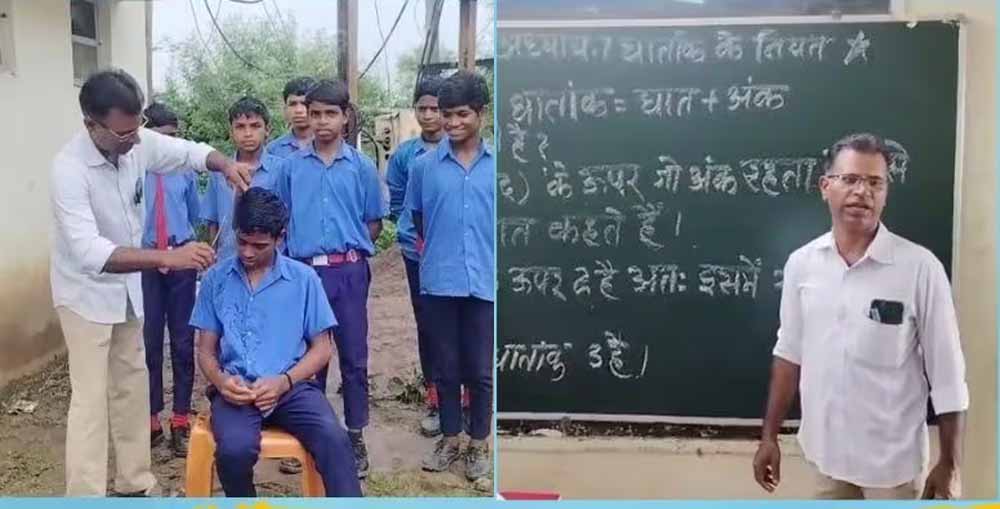 अध्याय.7 घातांक के नियत
घातांक = घात + अंक
है?
के ऊपर जो अंक रहता
कहते हैं।
ऊपर द है अतः इसमें
घातांक 3 है।